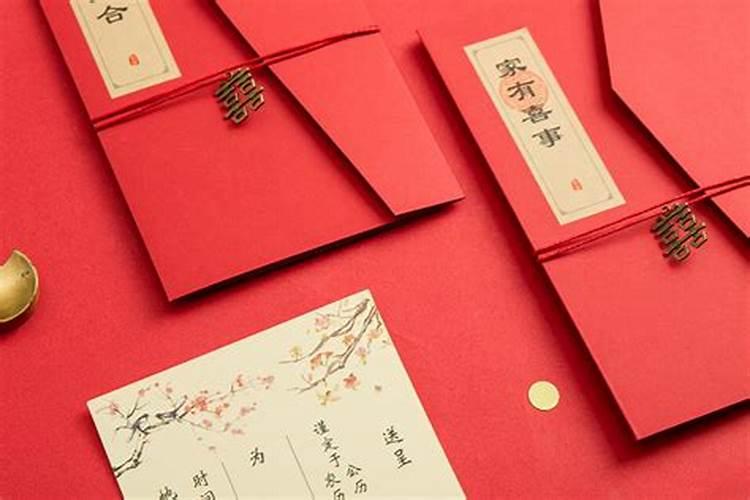 合
家有喜事
囍
囍
送呈
谨定于公历
农历
为
时间